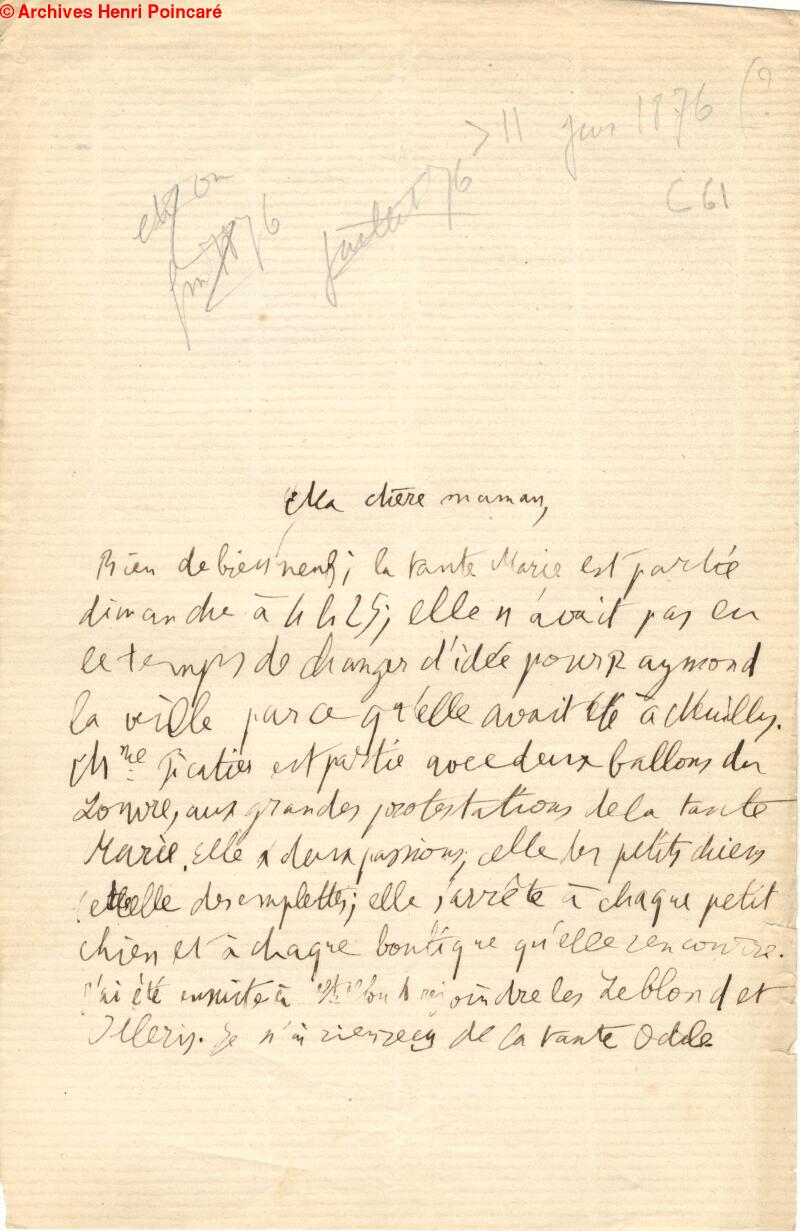 © Archives Henri Poincaré
> 11 juin 1876 (?
C 61
juillet 76
fin 1876
Ma chère maman,
Rien de bien neuf; la tante Marie est partie
dimanche à 4 h 25; elle n'avait pas eu
le temps de changer d'idée pour Raymond
la veille parce qu'elle avait été à Neuilly.
Mme Ficatier est partie avec deux ballons du
Louvre, aux grandes protestations de la tante
Marie. Elle a deux passions, celle des petits chiens
et celle des emplettes; elle s'arrête à chaque petit
chien et à chaque boutique qu'elle rencontre.
J'ai été ensuite à rejoindre les Leblond et
Olleris. Je n'ai rien reçu de la tante Odile